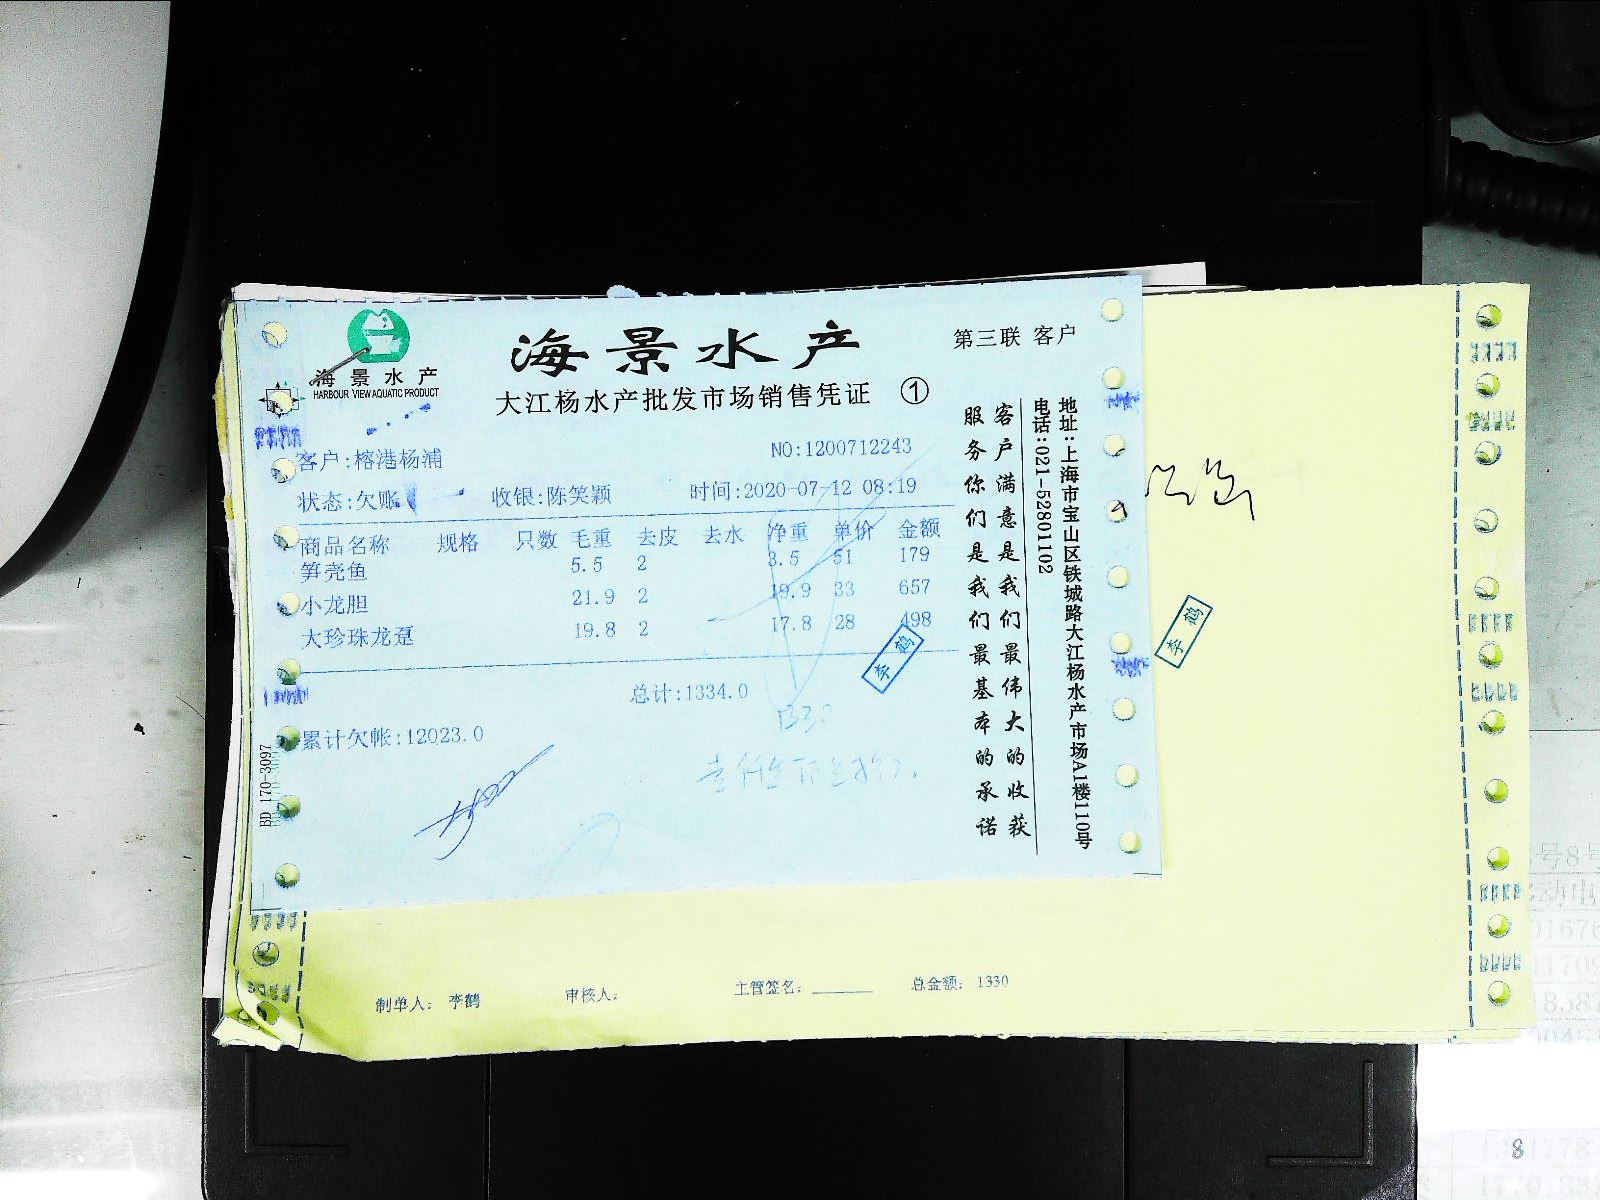 海景水产
HARBOUR VIEW AQUATIC PRODUCT
海景水产
第三联 客户
大江杨水产批发市场销售凭证 ①
客户:榕港杨浦
NO:1200712243
状态:欠账 收银:陈笑颖 时间:2020-07-12 08:19
商品名称 规格 只数 毛重 去皮 去水 净重 单价 金额
笋壳鱼 5.5 2 3.5 51 179
小龙胆 21.9 2 19.9 33 657
大珍珠龙趸 19.8 2 17.8 28 498
总计:1334.0
1330
累计欠帐:12023.0
李鹤
BD 170-3097
客户满意是我们最伟大的收获
服务你们是我们最基本的承诺
地址:上海市宝山区铁城路大江杨水产市场A1楼110号
电话:021-52801102
李鹤
制单人: 李鹤 审核人: 主管签名: 总金额: 1330
8